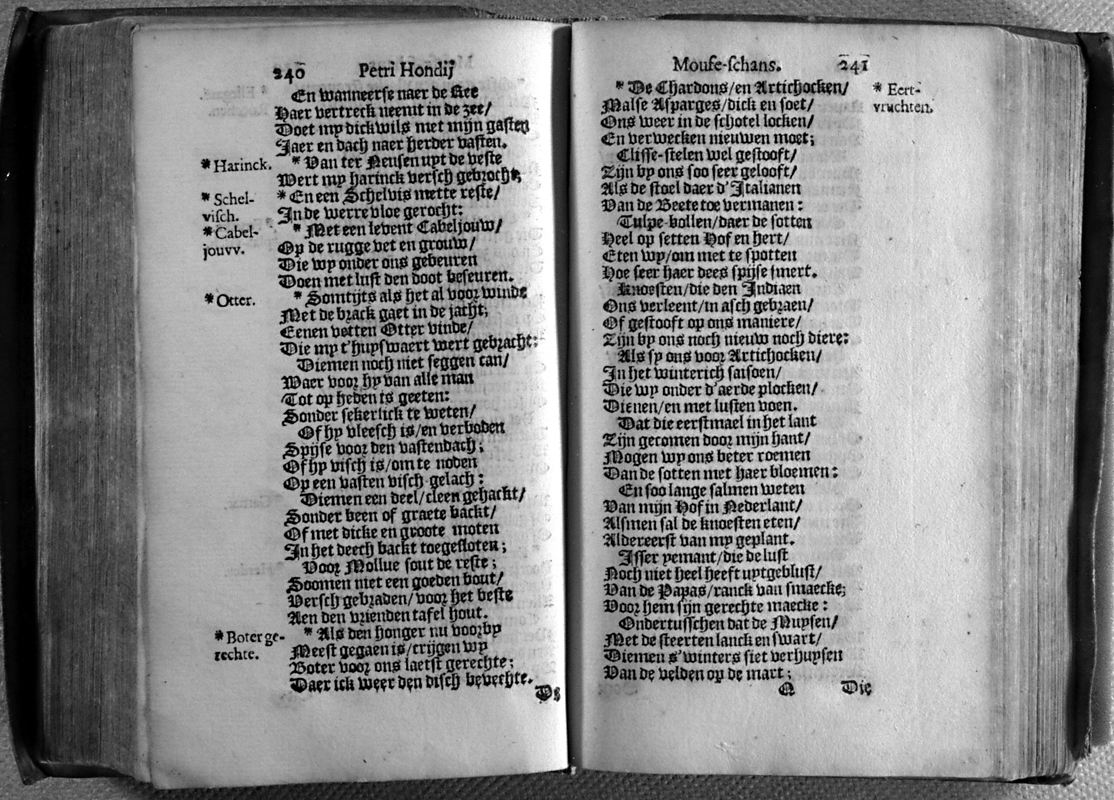 240 Petri Hondij
En wanneerse naer de Ree
Haer vertreck neemt in de zee/
Doet my dickwils met mijn gasten
Jaer en dach naer herder vasten.
* Harinck. * Van ter Neusen uyt de veste
Wert my harinck versch gebrocht;
* Schel-
visch.
* En een Schelvis mette reste/
In de werre vloe gerocht:
* Cabel-
jouvv.
* Met een levent Cabeljouw/
Op de rugge vet en grouw/
Die wy onder ons gebeuren
Doen met lust den doot beseuren.
* Otter. * Somtijts als het al voor winde
Met de brack gaet in de jacht;
Eenen vetten Otter vinde/
Die my t'huyswaert wert gebracht:
Diemen noch niet seggen can/
Waer voor hy van alle man
Tot op heden is geeten:
Sonder sekerlick te weten/
Of hy vleesch is/en verboden
Spijse voor den vastendach;
Of hy visch is/om te noden
Op een vasten visch-gelach:
Diemen een deel/cleen gehackt/
Sonder been of graete backt/
Of met dicke en groote moten
In het deech backt toegesloten;
Voor Mollue sout de reste;
Soomen niet een goeden bout/
Versch gebraden/voor het beste
Aen den vrienden tafel hout.
* Boter ge-
rechte.
* Als den honger nu voorby
Meest gegaen is/crijgen wy
Boter voor ons laetst gerechte;
Daer ick weer den disch bevechte.
Mouse-schans. 241
* De Chardons/en Artichocken/
* Eert-
vruchten.
Malse Asparges/dick en soet/
Ons weer in de schotel locken/
En verwecken nieuwen moet;
Clisse-stelen wel gestooft/
Zijn by ons soo seer gelooft/
Als de stoel daer d'Italianen
Van de Beete toe vermanen:
Tulpe-bollen/daer de sotten
Heel op setten Hof en hert/
Eten wy/om met te spotten
Hoe seer haer dees spijse smert.
Knoesten/die den Indiaen
Ons verleent/in asch gebraen/
Of gestooft op ons maniere/
Zijn by ons noch nieuw noch diere:
Als sy ons voor Artichocken/
In het winterich saisoen/
Die wy onder d'aerde plocken/
Dienen/en met lusten voen.
Dat die eerstmael in het lant
Zijn gecomen door mijn hant/
Mogen wy ons beter roemen
Dan de sotten met haer bloemen:
En soo lange salmen weten
Van mijn Hof in Nederlant/
Alsmen sal de knoesten eten/
Aldereerst van my geplant.
Isser yemant/die de lust
Noch niet heel heeft uytgeblust/
Van de Papas/ranck van smaecke;
Voor hem sijn gerechte maecke:
Ondertusschen dat de Muysen/
Met de steerten lanck en swart/
Diemen s'winters siet verhuysen
Van de velden op de mart;
Q Die